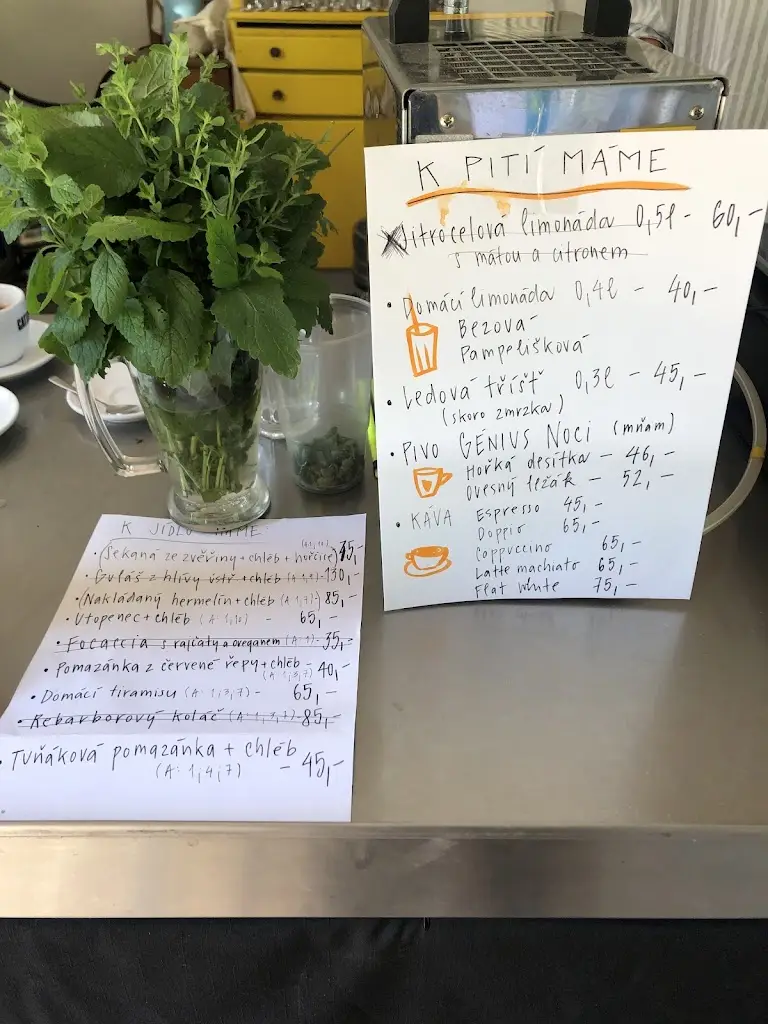 K PITÍ MÁME
Jitrocelová limonáda 0,5l - 60,-
s mátou a citronem
• Domácí limonáda 0,4l - 40,-
Bezová
Pampelišková
• Ledová tříšť 0,3l - 45,-
(skoro zmrzka)
• PIVO GÉNIUS NOCI (mňam)
Hořká desítka - 46,-
Ovesný ležák - 52,-
• KÁVA Espresso 45,-
Doppio 65,-
Coppuccino 65,-
Latte machiato 65,-
Flat white 75,-
K JÍDLU MÁME:
• (Sekaná ze zvěřiny + chléb + hořčice) 75,-
• Guláš z hlívy ústř + chléb (A: 1, ) - 130,-
• (Nakládaný hermelín + chléb (A: 1,7)) 85,-
• Utopenec + chléb (A: 1,10) - 65,-
• Focaccia s rajčaty a oreganem (A: 1) - 35,-
• Pomazánka z červené řepy + chléb - 40,-
(A: 1,3,7)
• Domácí tiramisu (A: 1,3,7) - 65,-
• Rebarborový koláč (A: 1,3,7) - 85,-
• Tuňáková pomazánka + chléb
(A: 1,4,7) - 45,-